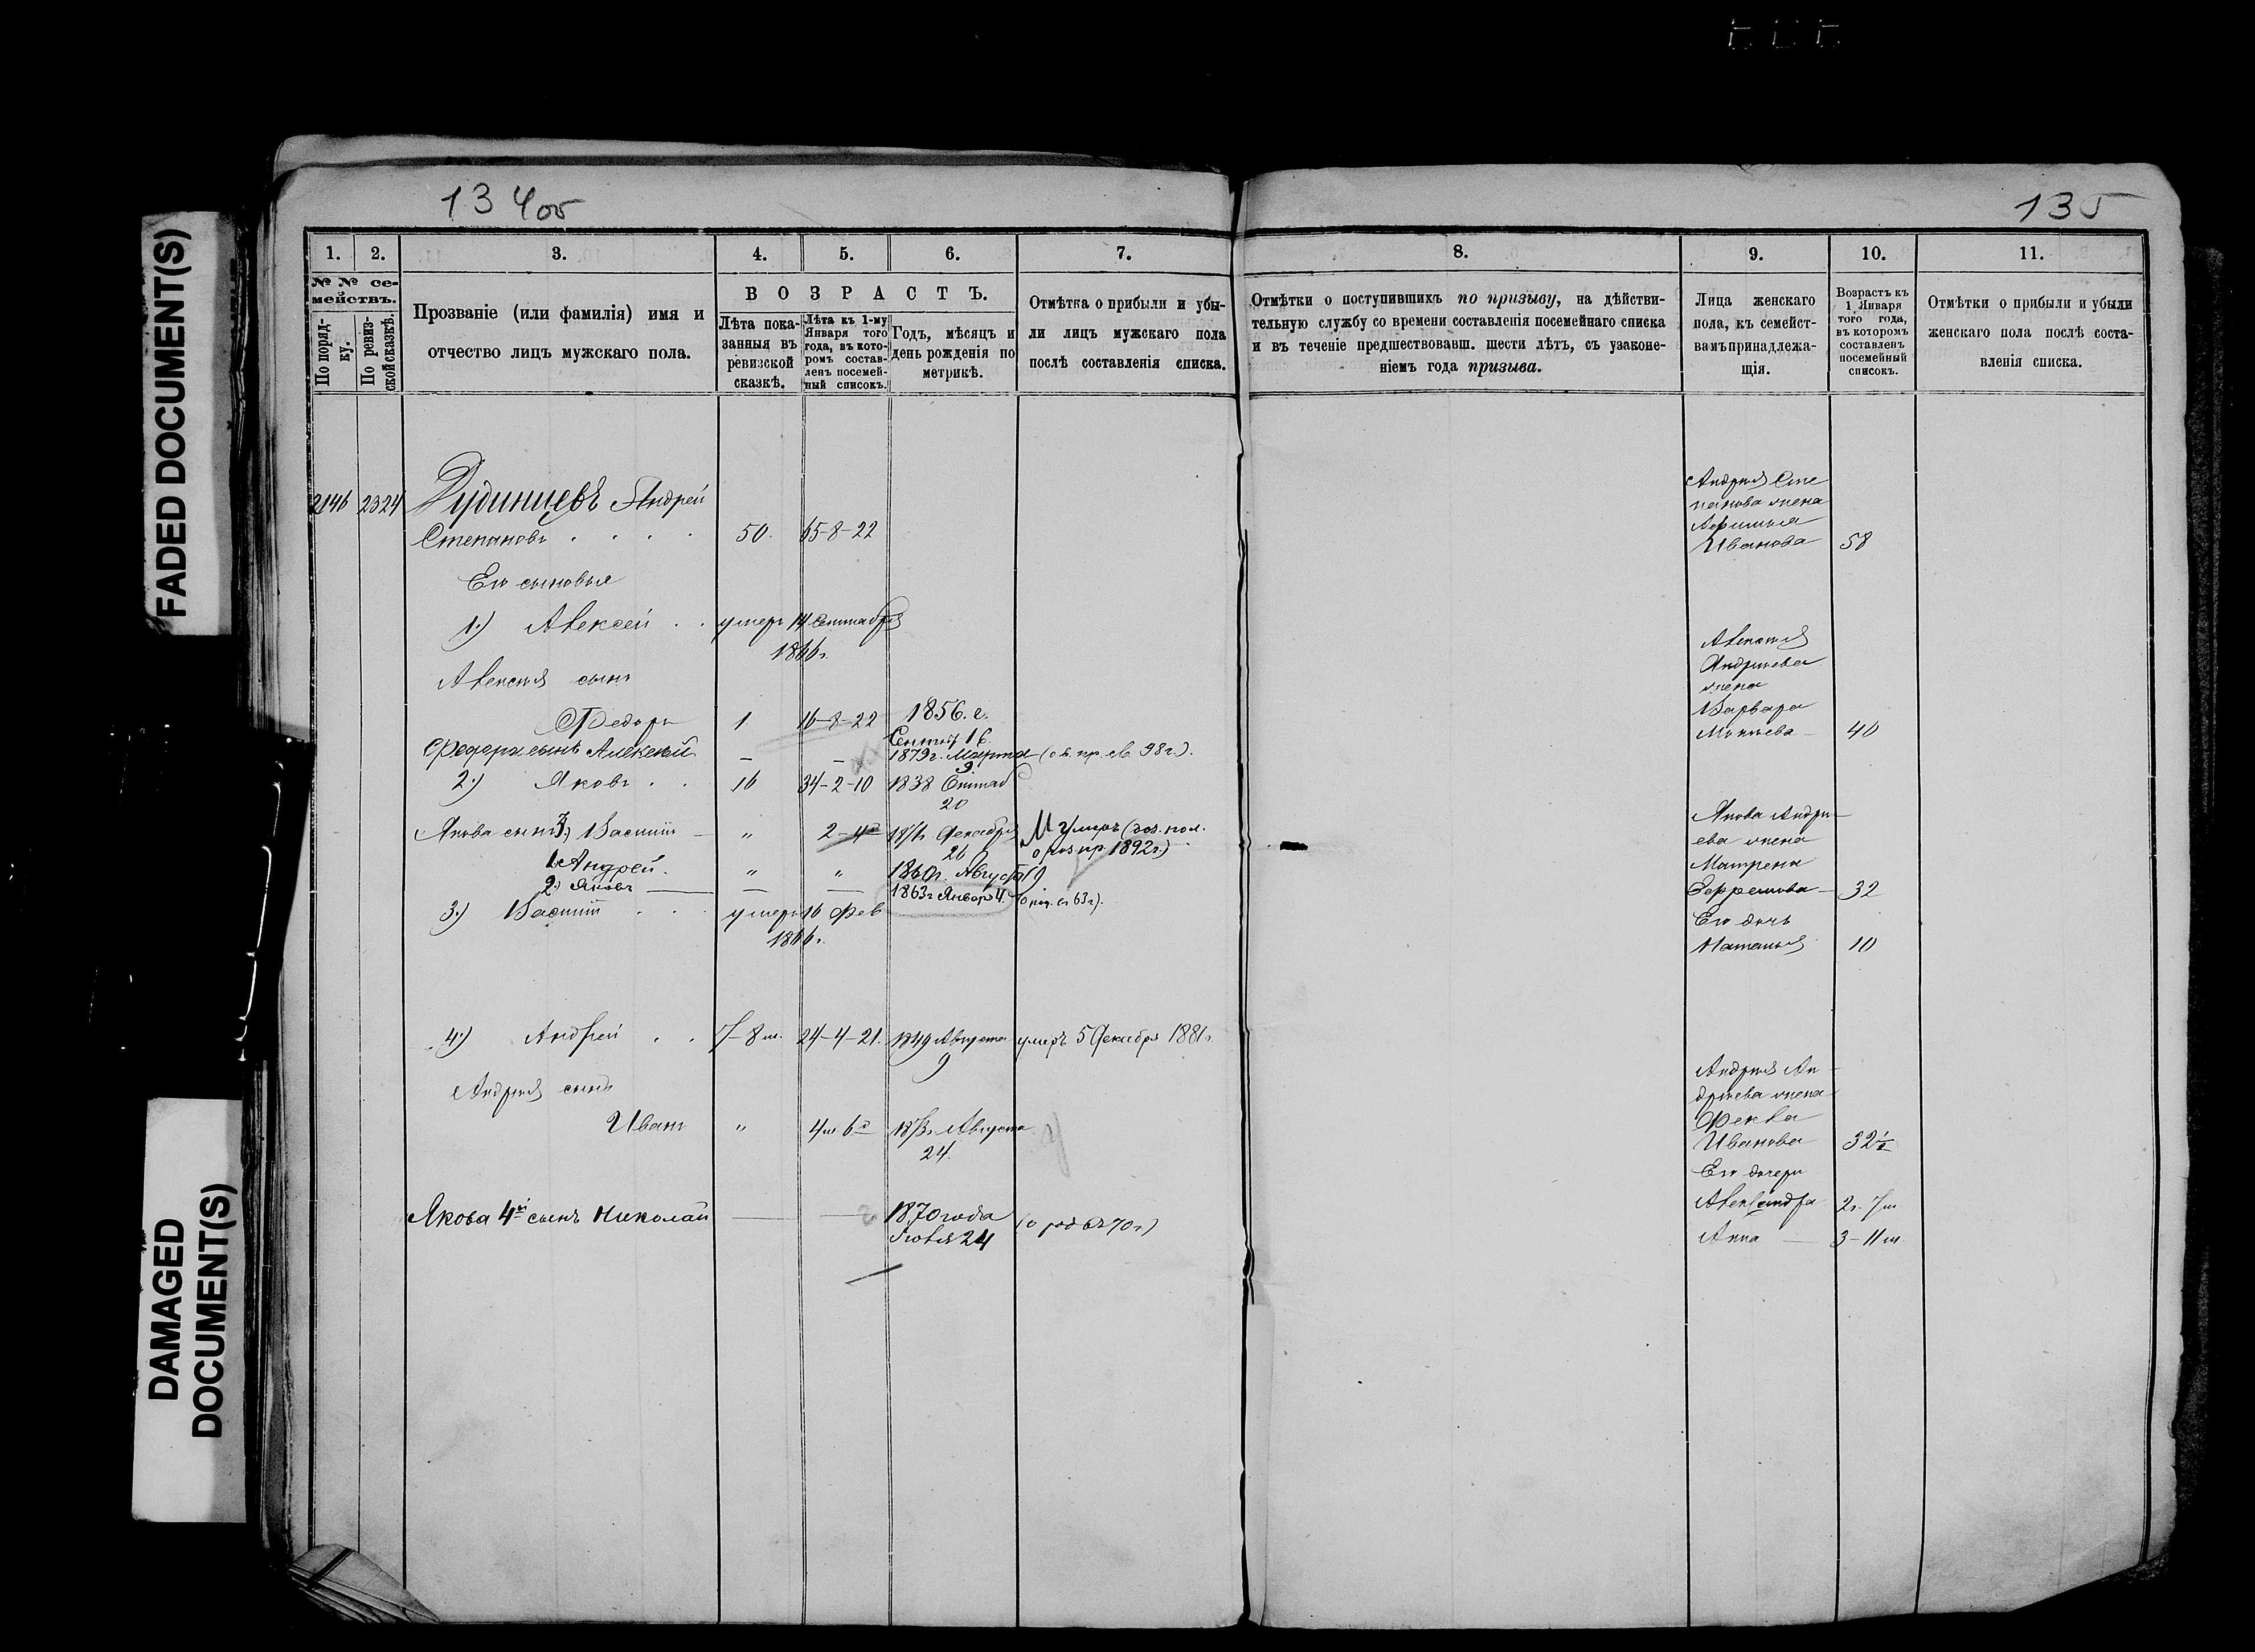 FADED DOCUMENT(S)
DAMAGED
DOCUMENT(S)
134об
135
1. 2. 3. 4. 5. 6. 7. 8. 9. 10. 11.
№ № се-
мействъ.
По поряд-
ку.
По ревиз-
ской сказкѣ.
Прозваніе (или фамилія) имя и
отчество лицъ мужскаго пола.
ВОЗРАСТЪ.
Лѣта пока-
занныя въ
ревизской
сказкѣ.
Лѣта къ 1-му
Января того
года, въ кото-
ромъ состав-
ленъ посемей-
ный списокъ.
Годъ, мѣсяцъ и
день рожденія по
метрикѣ.
Отмѣтка о прибыли и убы-
ли лицъ мужскаго пола
послѣ составленія списка.
Отмѣтки о поступившихъ по призыву, на дѣйстви-
тельную службу со времени составленія посемейнаго списка
и въ теченіе предшествовавш. шести лѣтъ, съ указоне-
ніемъ года призыва.
Лица женскаго
пола, къ семейст-
вамъ принадлежа-
щія.
Возрастъ къ
1 Января
того года,
въ которомъ
составленъ
посемейный
списокъ.
Отмѣтки о прибыли и убыли
женскаго пола послѣ соста-
вленія списка.
2146 2324 Дудинцевъ Андрей
Степановъ . . . . 50. 65-8-22
Его сыновья
1.) Алексей . . умеръ 14 Сентября
1866 г.
Алексея сынъ
Федоръ 1 16-8-22 1856. г.
Сентяб 16.
Федора сынъ Алексей — — 1879 г. Марта
9
2.) Яковъ . . 16 34-2-10 1838 Октяб
20
Якова сынъ 3.) Василий — „ 2-4 Декабря умеръ
26 1892 г.)
1. Андрей. „ „ 1860 г. Августа
2.) Яковъ — — — 1863 г Января 4.
3.) Василий . . умеръ 16 Фев
1866 г.
4.) Андрей . . 7-8 м. 24-4-21. 1849 Августа умеръ 5 Декабря 1881 г.
9
Андрея сынъ
Иванъ „ 4 м 6 д Августа
24.
Якова 4й сынъ Николай — — 1870 года (о род 70 г)
24
Андрея Сте
панова жена
Иванова 58
Алексея
Андреева
жена
Варвара
40
Якова Андре—
ева жена
Матрена
32
Его дочь
Наталья 10
Андрея Ан—
дреева жена
Фекла
Иванова 32½
Его дочери
Александра 2 г. 7 м
Анна — 3-11 м